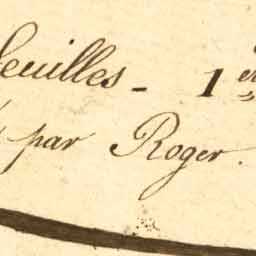 feuilles - 1er
par Roger.